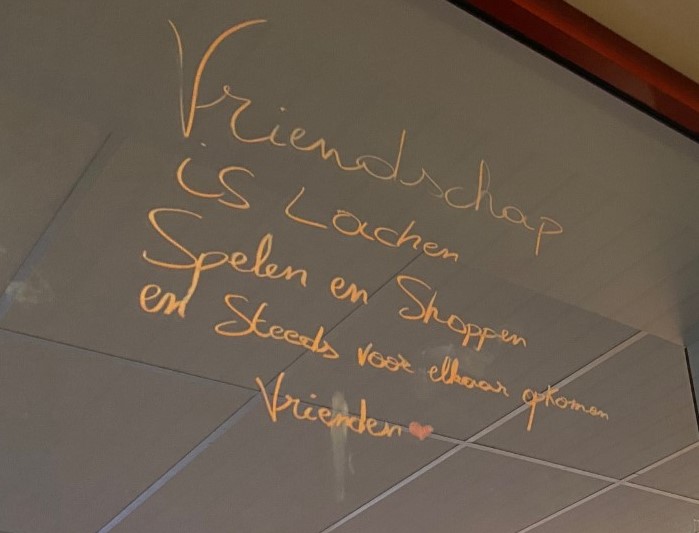 Vriendschap
is Lachen
Spelen en Shoppen
en Steeds voor elkaar opkomen
Vrienden ❤